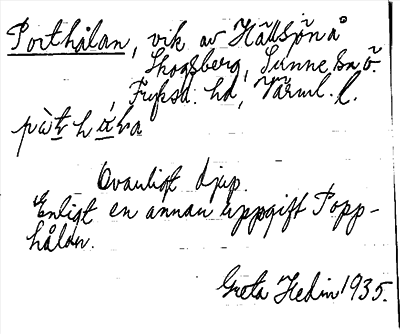 Porthålan, vik av Hällsjön å
Skogsberg, Sunne sn ö.
, Fryksd. hd, Värml. l.
pà
Ovanligt djup.
Enligt en annan uppgift Popp-
hålan.
Greta Hedin 1935.